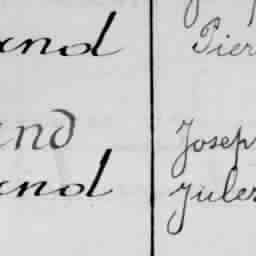 and Pier
and Josep
and Jules